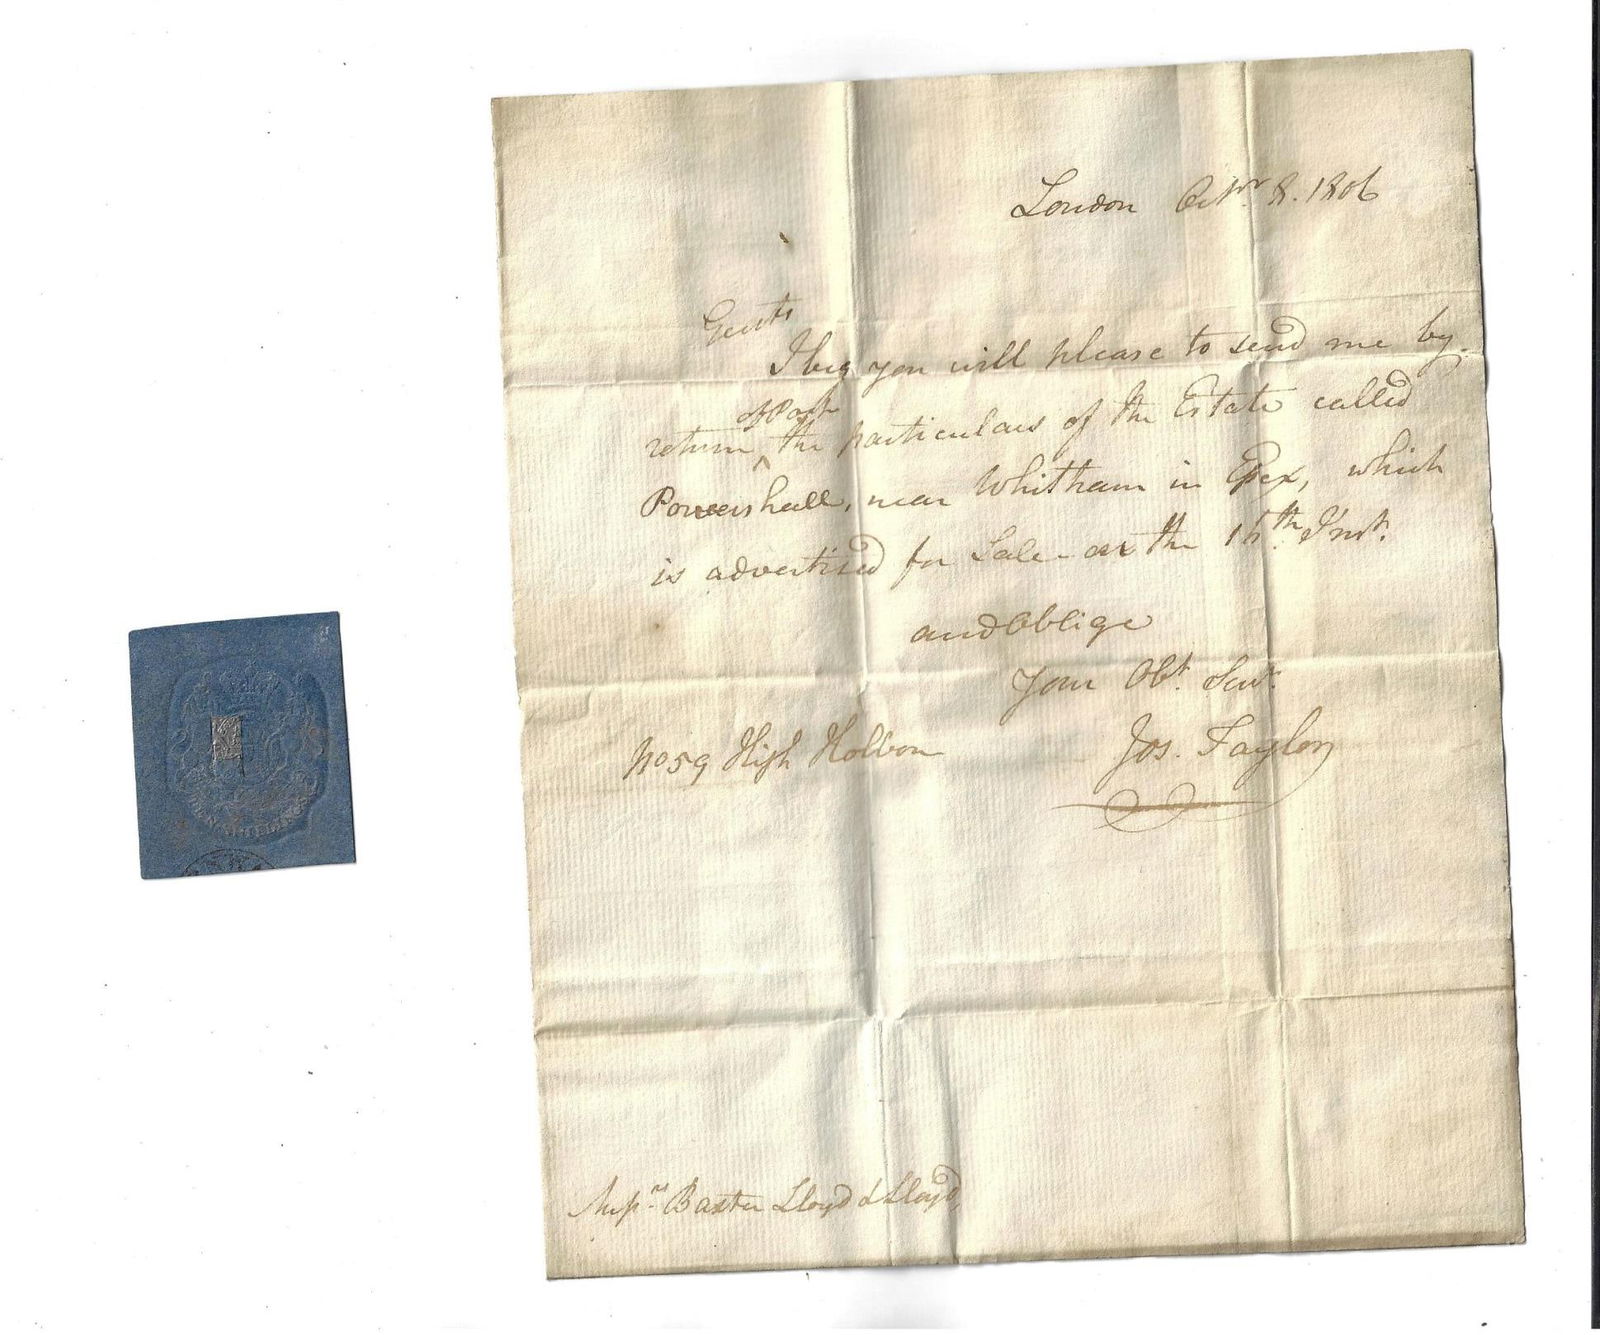 London Octr. 8. 1806
Gents
I beg you will please to send me by
of Post
return ^ the particulars of the Estate called
Powershall, near Whitham in Essex, which
is advertised for Sale on the 16th. Inst.
and Oblige
Your Obt. Servt.
No 59 High Holborn
Jos. Taylor
Messrs. Baxter Lloyd & Lloyd,